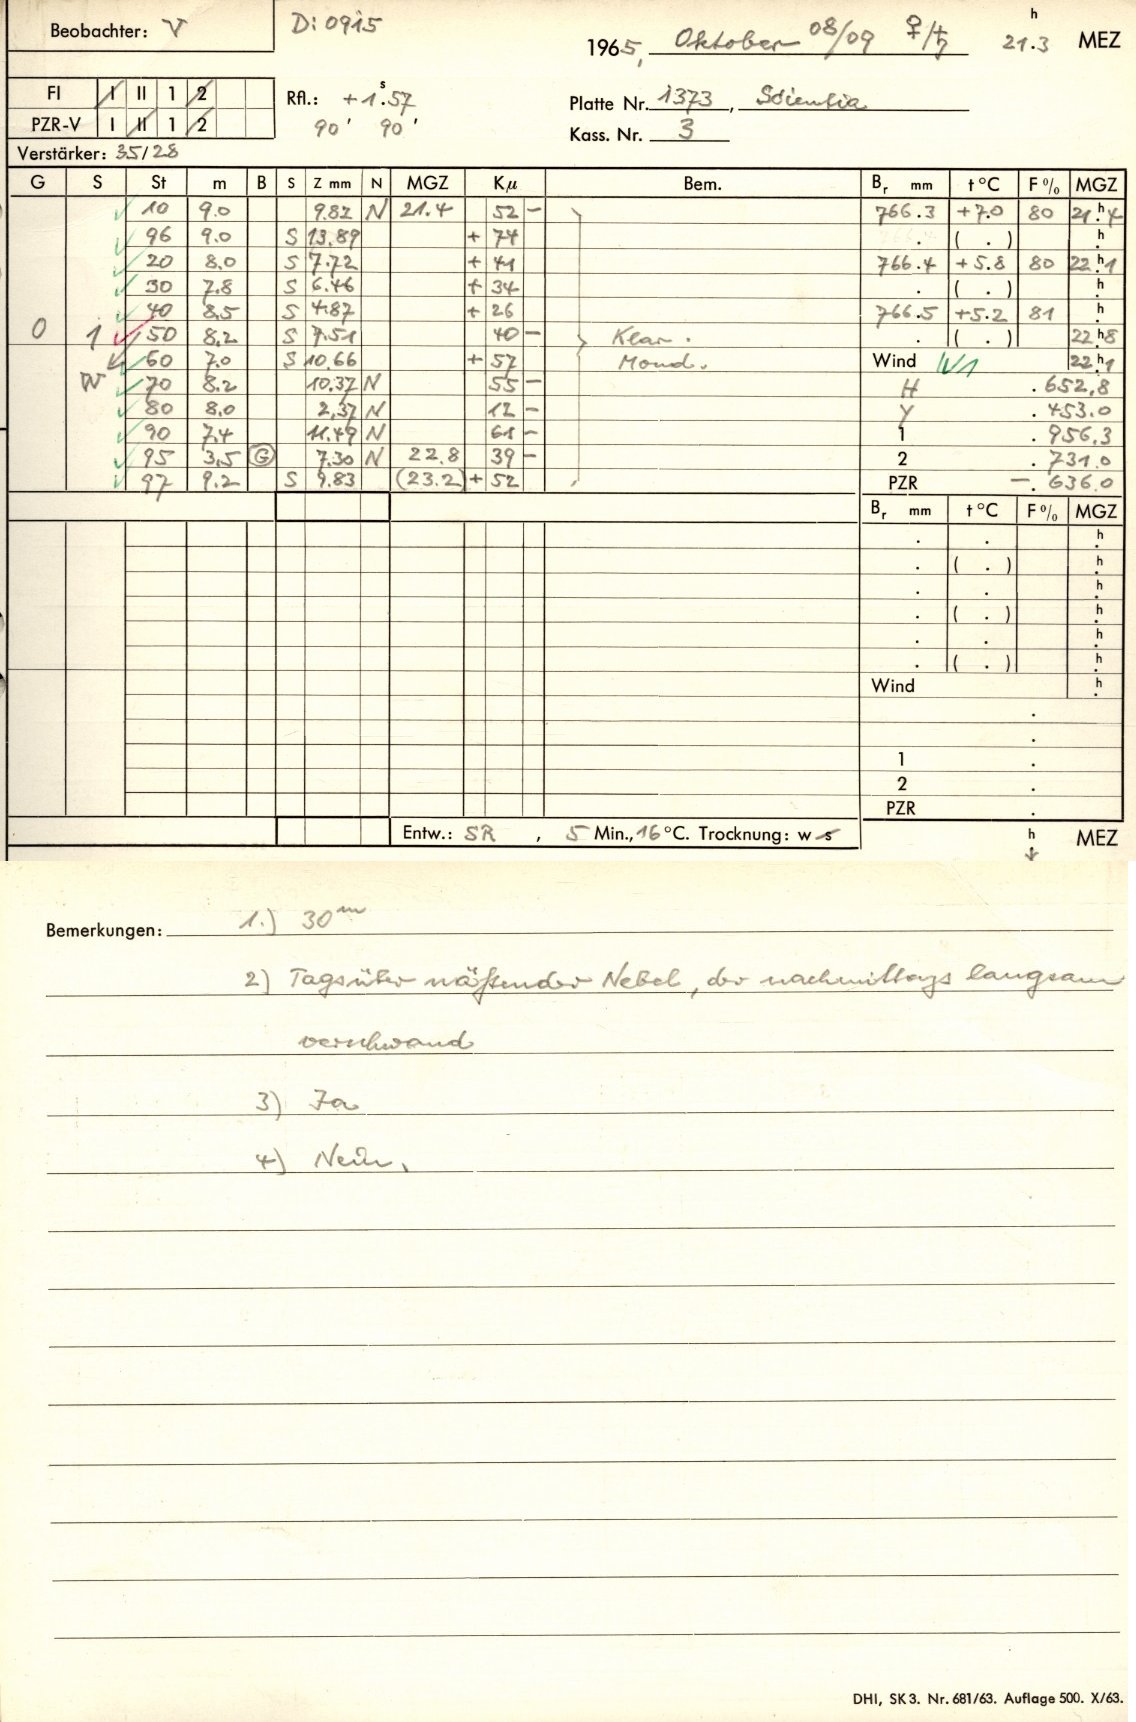 Beobachter: V
D: 0915
1965, Oktober 08/09 ♀/♄ 21.3 h MEZ
FI I II 1 2
PZR-V I II 1 2
Rfl.: +1.s57
90' 90'
Platte Nr. 1373, Scientia
Kass. Nr. 3
Verstärker: 35/28
G S St m B S Z mm N MGZ Kμ Bem. Br mm t °C F % MGZ
10 9.0 9.82 N 21.4 52 – 766.3 +7.0 80 21.h4
96 9.0 S 13.89 + 74 . ( . ) h.
20 8.0 S 7.72 + 41 766.4 +5.8 80 22.h1
30 7.8 S 6.46 + 34 . ( . ) h.
40 8.5 S 4.87 + 26 766.5 +5.2 81 h.
0 1 50 8.2 S 7.51 40 – Klar. . ( . ) 22.h8
W 60 7.0 S 10.66 + 57 Mond. Wind W1 22.h1
70 8.2 10.37 N 55 – H . 652,8
80 8.0 2,37 N 12 – Y . 453.0
90 7.4 11.49 N 61 – 1 . 956,3
95 3,5 G 7.30 N 22.8 39 – 2 . 731.0
97 9.2 S 9.83 (23.2) + 52 PZR –. 636.0
Br mm t °C F % MGZ
. . h.
. ( . ) h.
. . h.
. ( . ) h.
. . h.
. ( . ) h.
Wind h.
.
.
1 .
2 .
PZR .
Entw.: SR , 5 Min., 16 °C. Trocknung: w s h MEZ
Bemerkungen: 1.) 30m
2) Tagsüber näßender Nebel, der nachmittags langsam
verschwand
3) Ja
4) Nein.
DHI, SK 3. Nr. 681/63. Auflage 500. X/63.